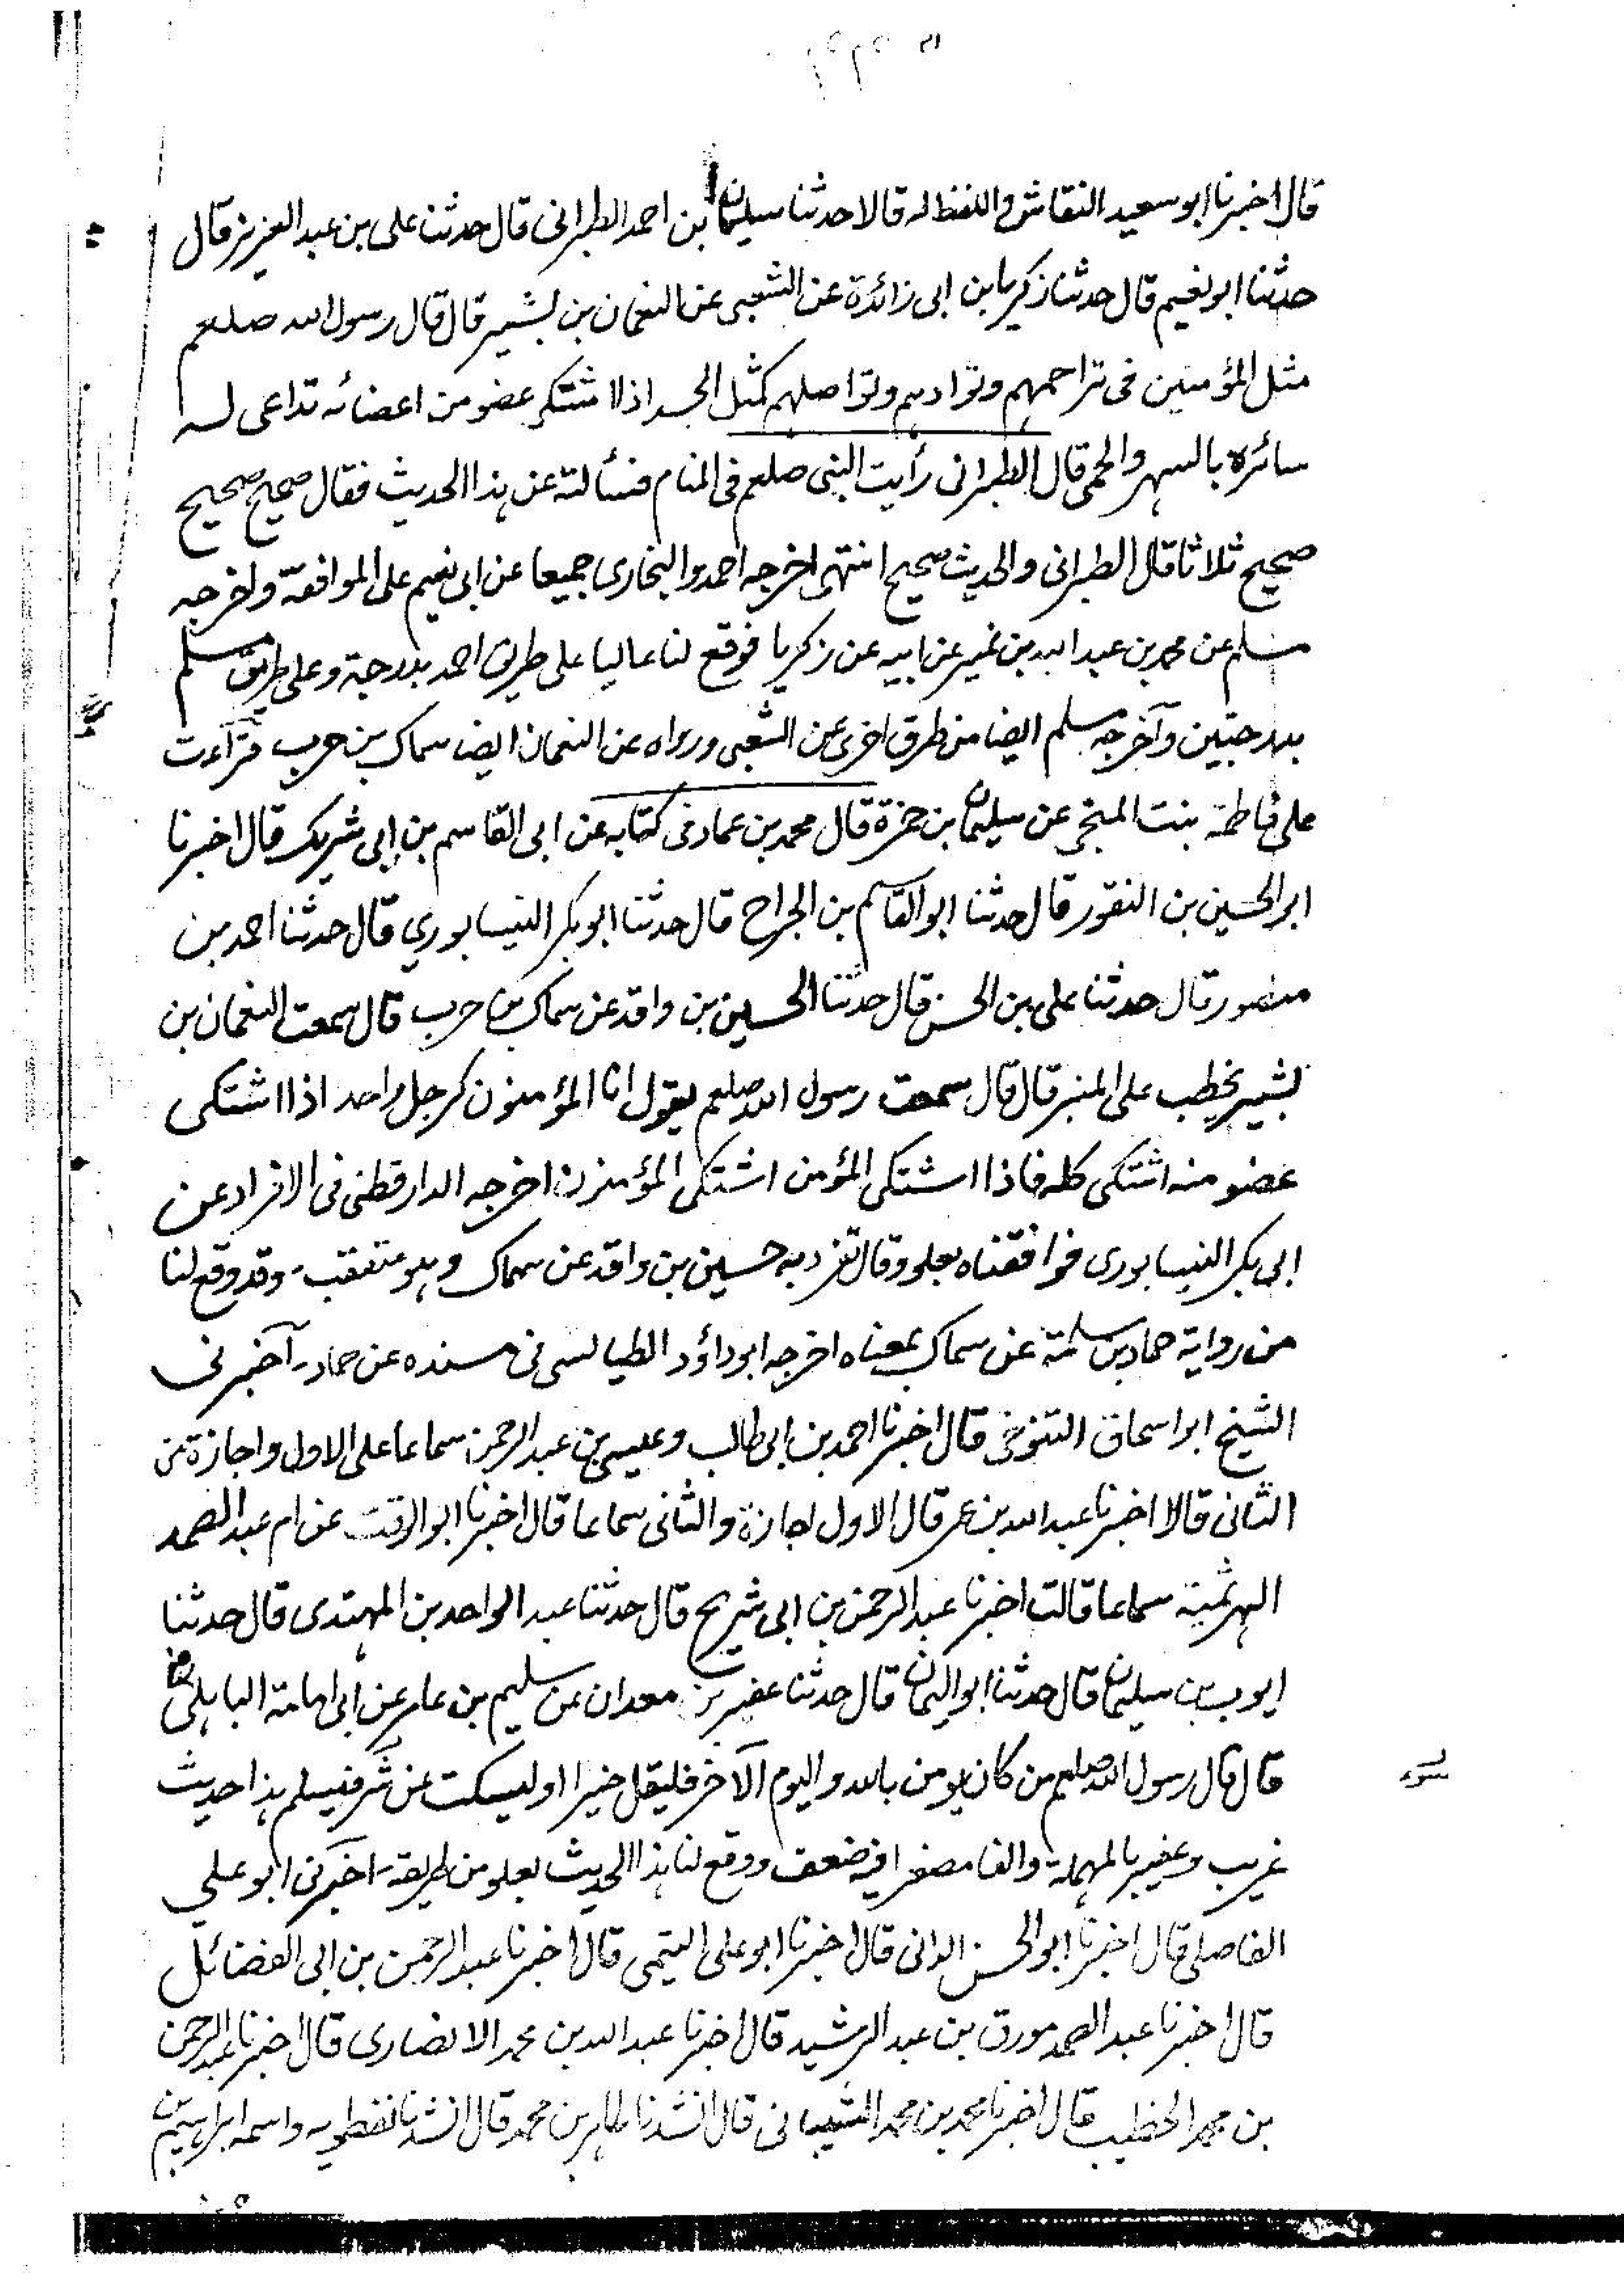 قال اخبرنا ابو سعيد النقاش واللفظ له قالا حدثنا سليمان بن احمد الطبرانى قال حدثنا على بن عبد العزيز قال
حدثنا ابو نعيم قال حدثنا زكريا بن ابى زائدة عن الشعبى عن النعمان بن بشير قال قال رسول الله صلعم
مثل المؤمنين فى تراحمهم وتوادهم وتواصلهم كمثل الجسد اذا اشتكى عضو من اعضائه تداعى له
سائره بالسهر والحمى قال الطبرانى رأيت النبى صلعم فى المنام فسألته عن هذا الحديث فقال صحيح صحيح
صحيح ثلاثا قال الطبرانى والحديث صحيح انتهى اخرجه احمد والبخارى جميعا عن ابى نعيم على الموافقة واخرجه
مسلم عن محمد بن عبد الله بن نمير عن ابيه عن زكريا فوقع لنا عاليا على طريق احمد بدرجة وعلى طريق مسلم
بدرجتين وآخرجه مسلم ايضا من طرق اخرى عن الشعبى ورواه عن النعمان ايضا سماك بن حرب قرآءت
على فاطمة بنت المنجى عن سليمان بن حمزة قال محمد بن عماد فى كتابه عن ابى القاسم بن ابى شريك قال اخبرنا
ابو الحسين بن النقور قال حدثنا ابو القاسم بن الجراح قال حدثنا ابو بكر النيسابوري قال حدثنا احمد بن
منصور قال حدثنا على بن الحسن قال حدثنا الحسين بن واقد عن سماك بن حرب قال سمعت النعمان بن
بشير يخطب على المنبر قال قال سمعت رسول الله صلعم يقول انما المؤمنون كرجل واحد اذا اشتكى
عضو منه اشتكى كله فاذا اشتكى المؤمن اشتكى المؤمنون اخرجه الدارقطنى فى الافراد عن
ابى بكر النيسابورى فوافقناه بعلو وقال تفرد به حسين بن واقد عن سماك وهو متعقب وقد وقع لنا
من رواية حماد بن سلمة عن سماك بمعناه اخرجه ابو داؤد الطيالسى فى مسنده عن حماد آخبرنى
الشيخ ابو اسحاق التنوخى قال اخبرنا احمد بن ابى طالب وعيسى بن عبد الرحمن سماعا على الاول واجازة من
الثانى قالا اخبرنا عبد الله بن عمر قال الاول اجازة والثانى سماعا قال اخبرنا ابو الوقت عن ام عبد الصمد
الهرثمية سماعا قالت اخبرنا عبد الرحمن بن ابى شريح قال حدثنا عبد الواحد بن المهتدى قال حدثنا
ايوب بن سليمان قال حدثنا ابو اليمان قال حدثنا عفير بن معدان عن سليم بن عامر عن ابى امامة الباهلى رض
قال قال رسول الله صلعم من كان يومن بالله واليوم الآخر فليقل خيرا او ليسكت عن شر فيسلم هذا حديث
غريب وعفير بالمهملة والفا مصغرا فيه ضعف ووقع لنا هذا الحديث بعلو من طريقه اخبرنى ابو على
الفاضلى قال اخبرنا ابو الحسن الوانى قال اخبرنا ابو على التيمى قال اخبرنا عبد الرحمن بن ابى الفضائل
قال اخبرنا عبد الصمد مورق بن عبد الرشيد قال اخبرنا عبد الله بن محمد الانصارى قال اخبرنا عبد الرحمن
بن محمد الخطيب قال اخبرنا محمد بن محمد الشيبانى قال انشدنا طاهر بن محمد قال انشدنا نفطويه واسمه ابراهيم بن